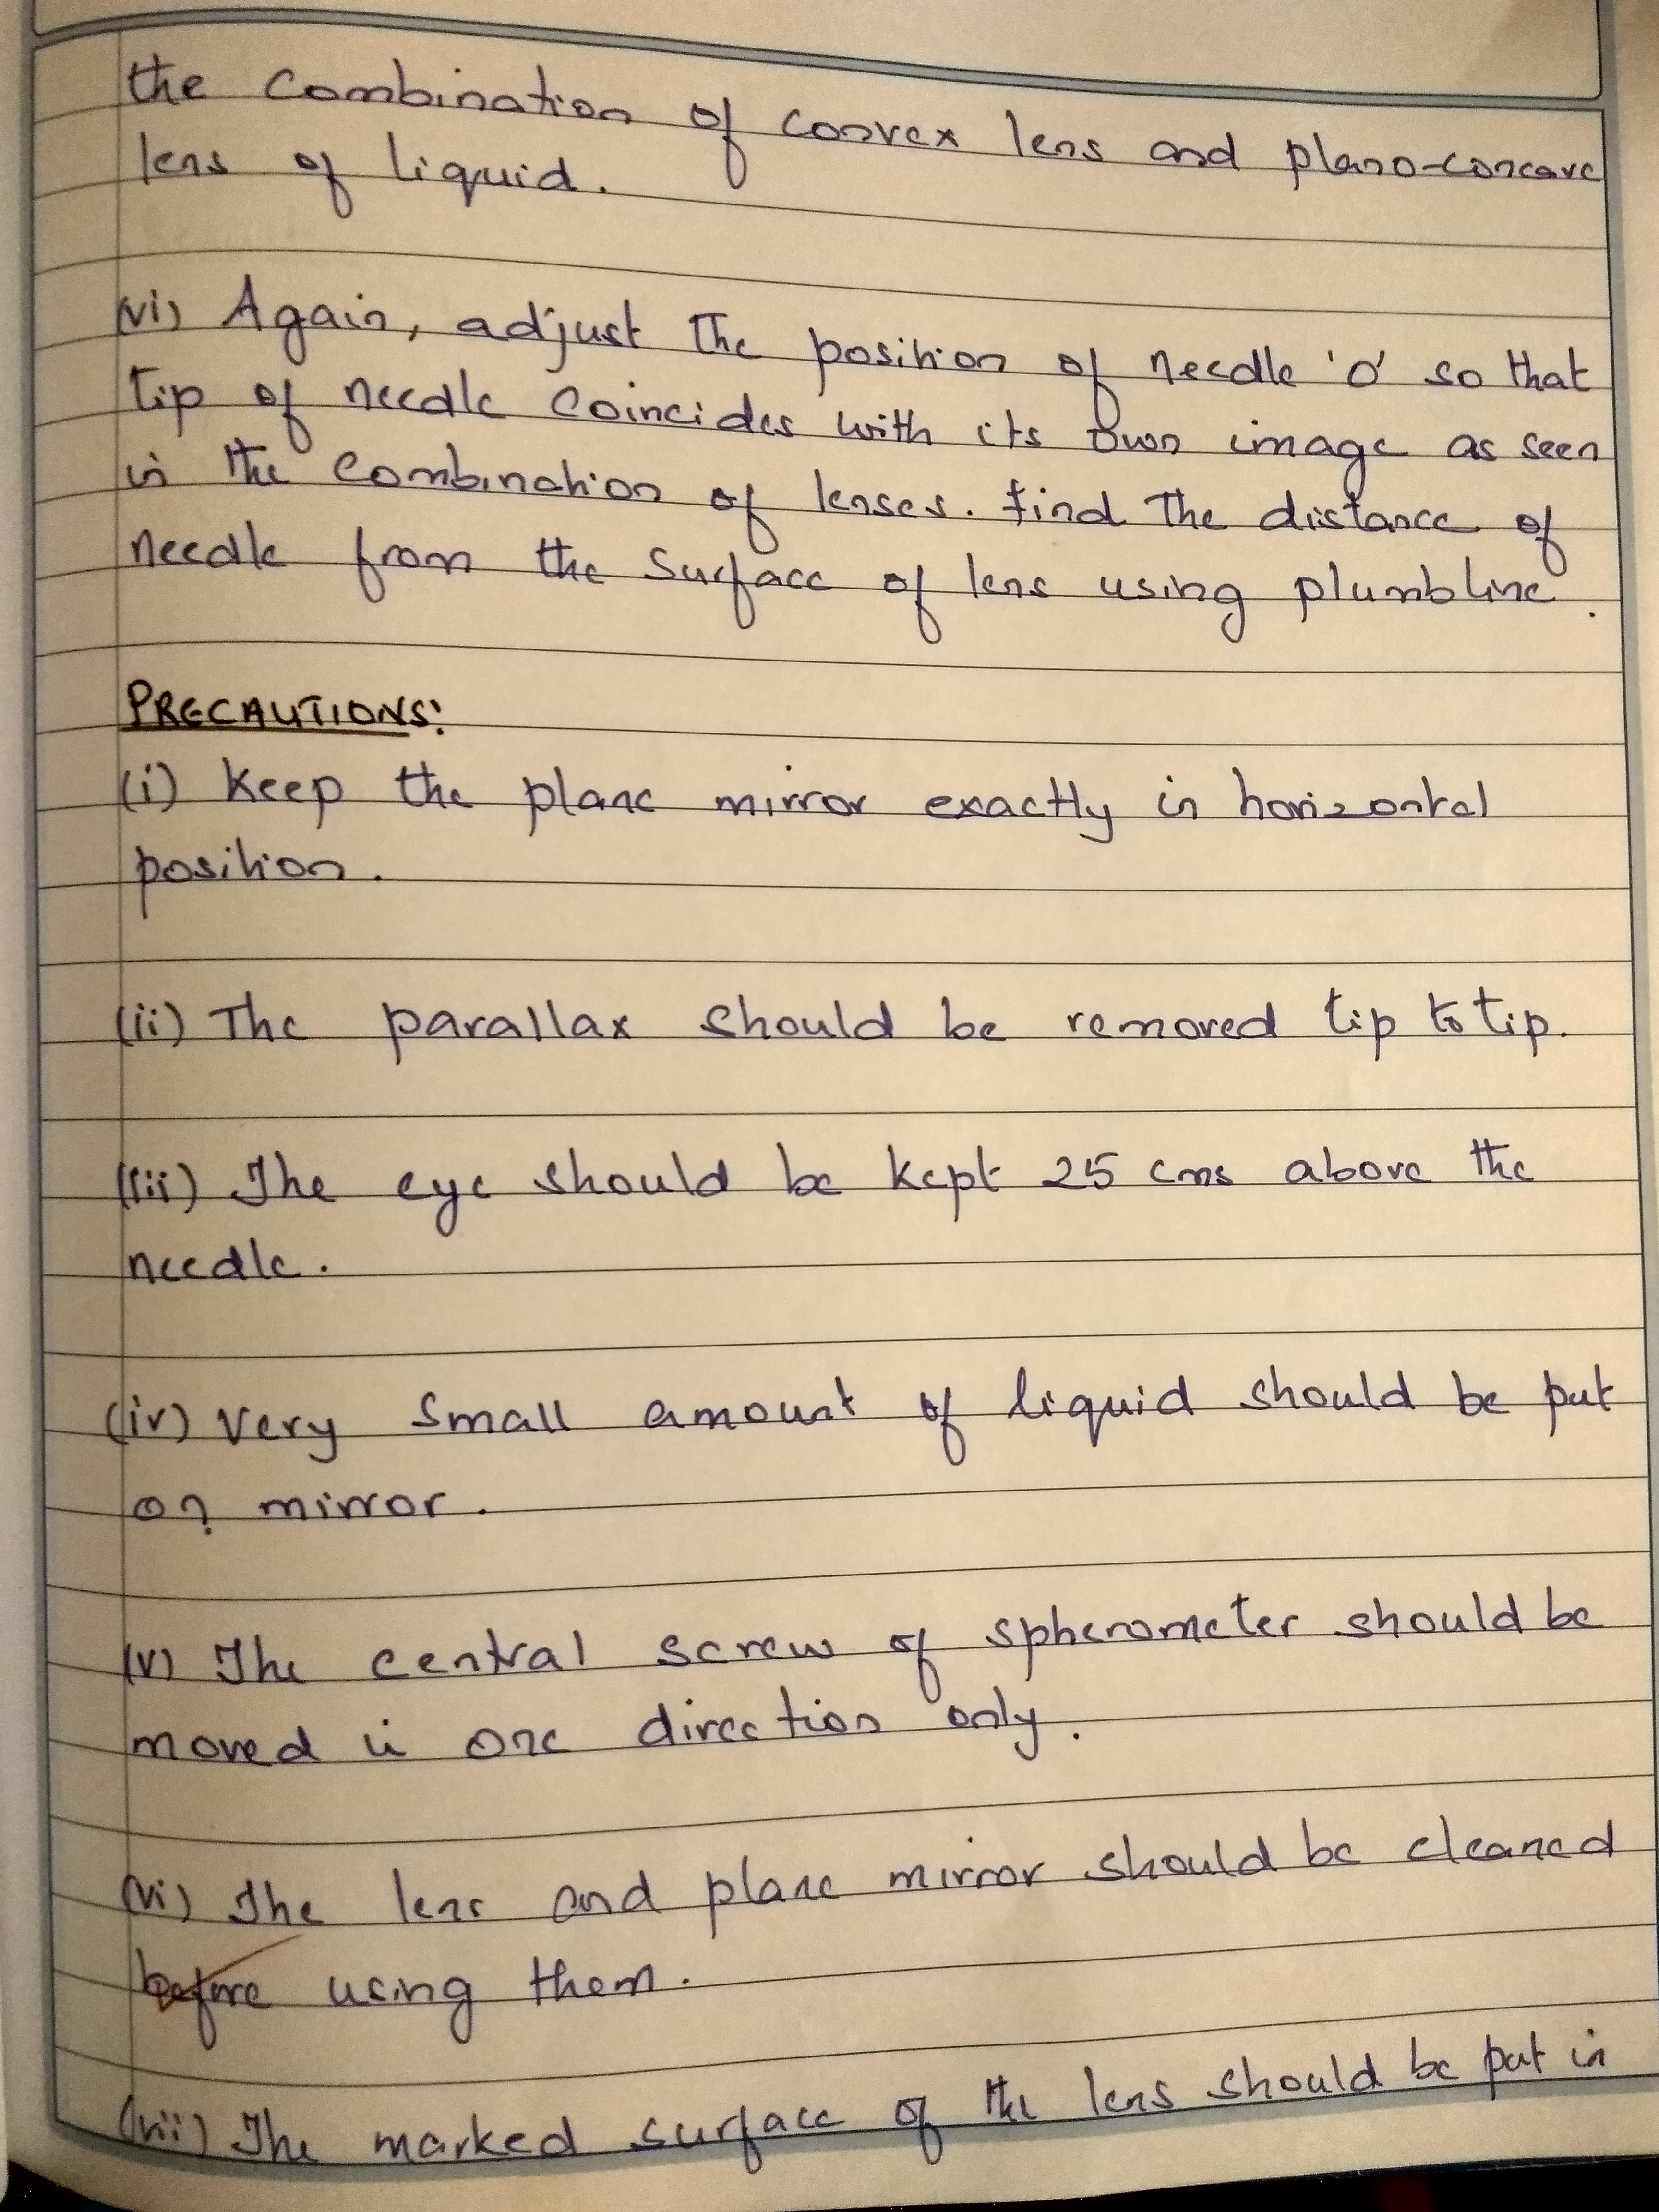 the combination of convex lens and plano-concave
lens of liquid.
(vi) Again, adjust the position of needle 'O' so that
tip of needle coincides with its own image as seen
in the combination of lenses. find the distance of
needle from the surface of lens using plumbline.
PRECAUTIONS:
(i) Keep the plane mirror exactly in horizontal
position.
(ii) The parallax should be removed tip to tip.
(iii) The eye should be kept 25 cms above the
needle.
(iv) Very small amount of liquid should be put
on mirror.
(v) The central screw of spherometer should be
moved in one direction only.
(vi) The lens and plane mirror should be cleaned
before using them.
(vii) The marked surface of the lens should be put in